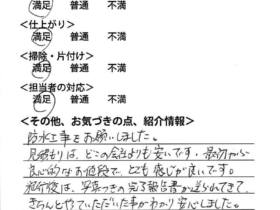 満足 普通 不満
<仕上がり>
満足 普通 不満
<掃除・片付け>
満足 普通 不満
<担当者の対応>
満足 普通 不満
<その他、お気づきの点、紹介情報>
防水工事をお願いしました。
見積もりは、どこの会社よりも安いです。最初から
良心的なお値段で、とても感じが良いです。
施行後は、写真つきの完了報告書が送られてきて、
きちんとやっていただいた事がわかり安心しました。